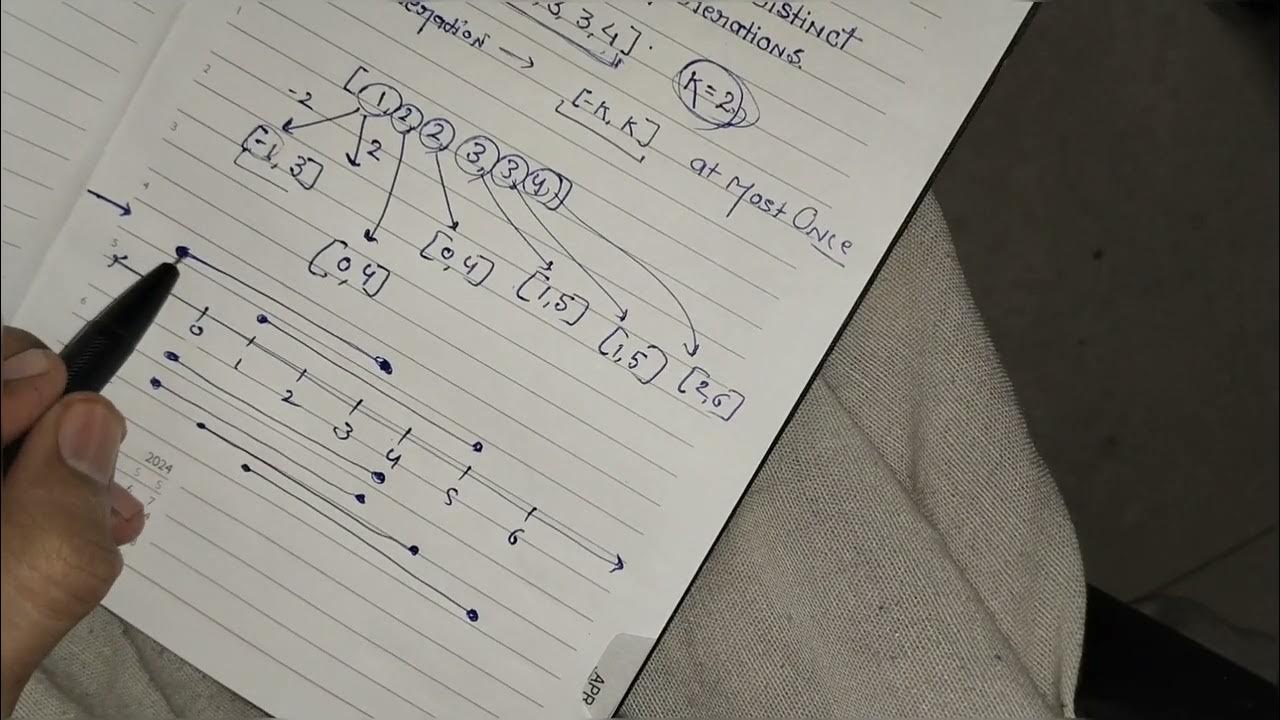 DISTINCT
, 3, 3, 4].
operations.
operation →
K=2
[-K, K]
at Most Once
[1, 2, 2, 3, 3, 4]
-2
2
[-1, 3]
[0, 4]
[0, 4]
[1, 5]
[1, 5]
[2, 6]
0 1 2 3 4 5 6
1
2
3
4
5
6
2024
5 5
6 7
APR